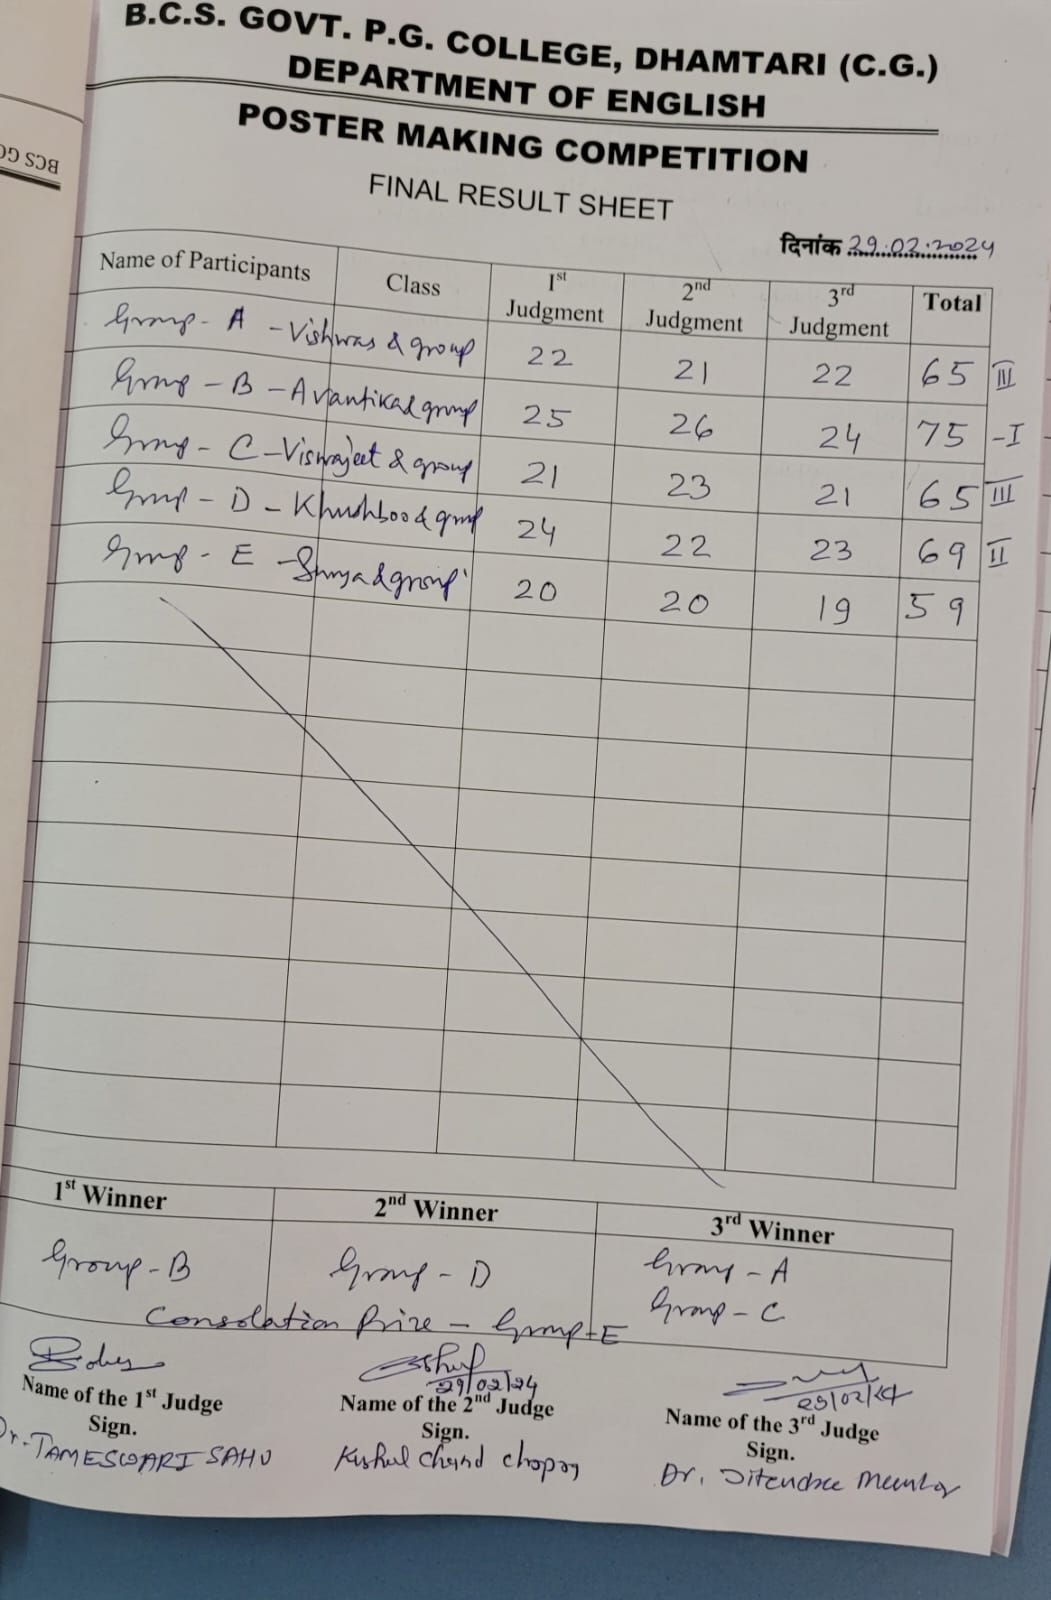 B.C.S. GOVT. P.G. COLLEGE, DHAMTARI (C.G.)
DEPARTMENT OF ENGLISH
POSTER MAKING COMPETITION
FINAL RESULT SHEET
दिनांक 29.02.2024
Name of Participants Class 1st Judgment 2nd Judgment 3rd Judgment Total
Group - A - Vishwas & group 22 21 22 65 III
Group - B - Avantika & group 25 26 24 75 - I
Group - C - Viswajeet & group 21 23 21 65 III
Group - D - Khushboo & group 24 22 23 69 II
Group - E - & group 20 20 19 59
1st Winner 2nd Winner 3rd Winner
Group - B Group - D Group - A
Group - C
Consolation Prize - Group - E
29/02/24 29/02/24
Name of the 1st Judge Name of the 2nd Judge Name of the 3rd Judge
Sign. Sign. Sign.
Dr. TAMESWARI SAHU Chand Dr. Jitendra
BCS GO